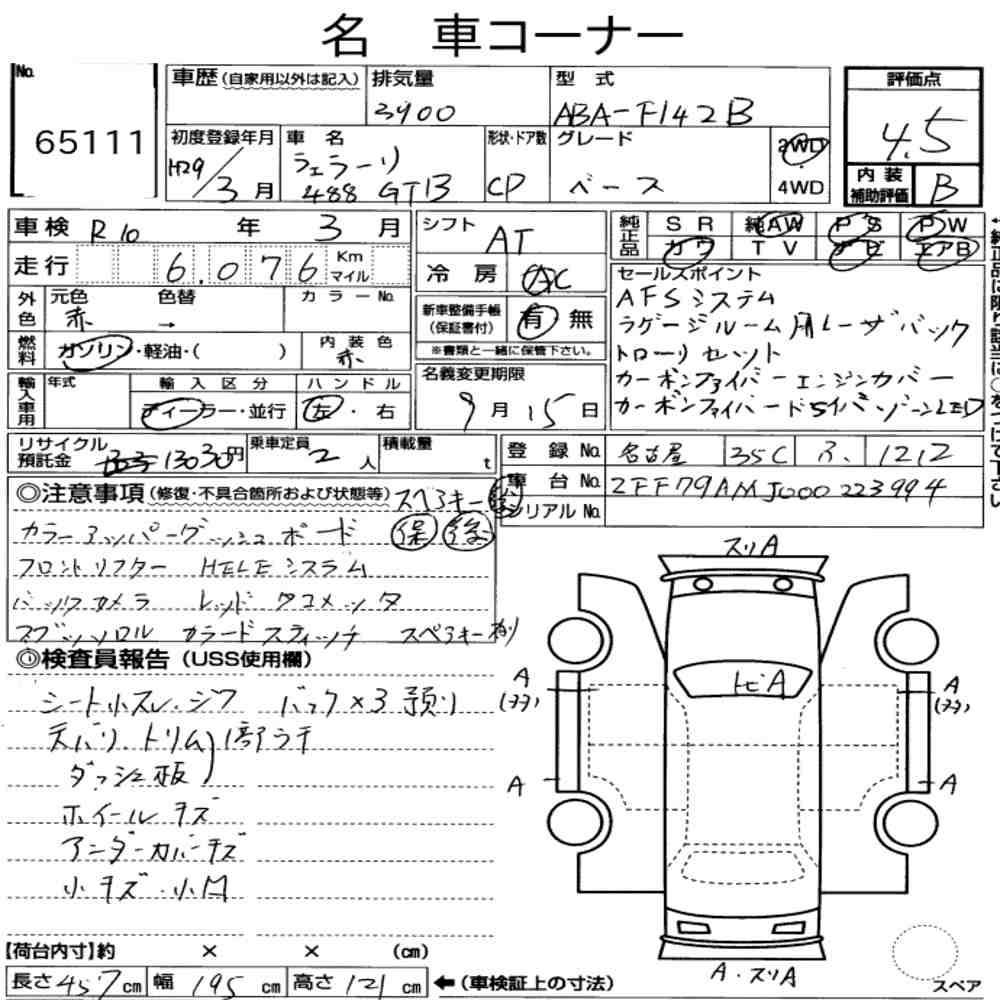 名 車コーナー
No.
65111
車歴 (自家用以外は記入)
排気量
3900
型 式
ABA-F142B
評価点
4.5
初度登録年月
H29/3月
車 名
フェラーリ
488 GTB
形状・ドア数
CP
グレード
ベース
2WD
・
4WD
内 装
補助評価
B
車検 R10 年 3 月
走行 6,076 Km マイル
シフト
AT
冷 房 AC
純正品
S R 純AW P S P W
カワ T V ナビ エアB
外色
元色 色替
赤 →
カラーNo.
燃料
ガソリン・軽油・( )
内 装 色
赤
新車整備手帳
(保証書付)
有 無
※書類と一緒に保管下さい。
セールスポイント
AFSシステム
ラゲージルーム用レーザバック
トローリセット
カーボンファイバーエンジンカバー
輸入車用
年式
輸 入 区 分
ディーラー・並行
ハ ン ド ル
左・右
名義変更期限
9月15日
リサイクル
預託金
13030円
乗車定員
2人
積載量
t
登 録 No.
名古屋 35C 3. 1212
車 台 No.
ZFF79AMJ000223994
シリアルNo.
◎注意事項(修復・不具合箇所および状態等)スペアキー
カラーアッパーダッシュボード 保 後
フロントリフター HELEシステム
バックカメラ レッドタコメッタ
カラードスティッチ スペアキー
◎検査員報告(USS使用欄)
シート小スレ・シワ バック×3預り
天バリ、トリム
ダッシュ板 1部ラチ
ホイールキズ
アンダーカバーキズ
小キズ・小凹
【荷台内寸】約 × × (cm)
長さ457cm 幅195cm 高さ121cm ←(車検証上の寸法)
スリA
トビA
A
A
A
A
A・スリA
スペア